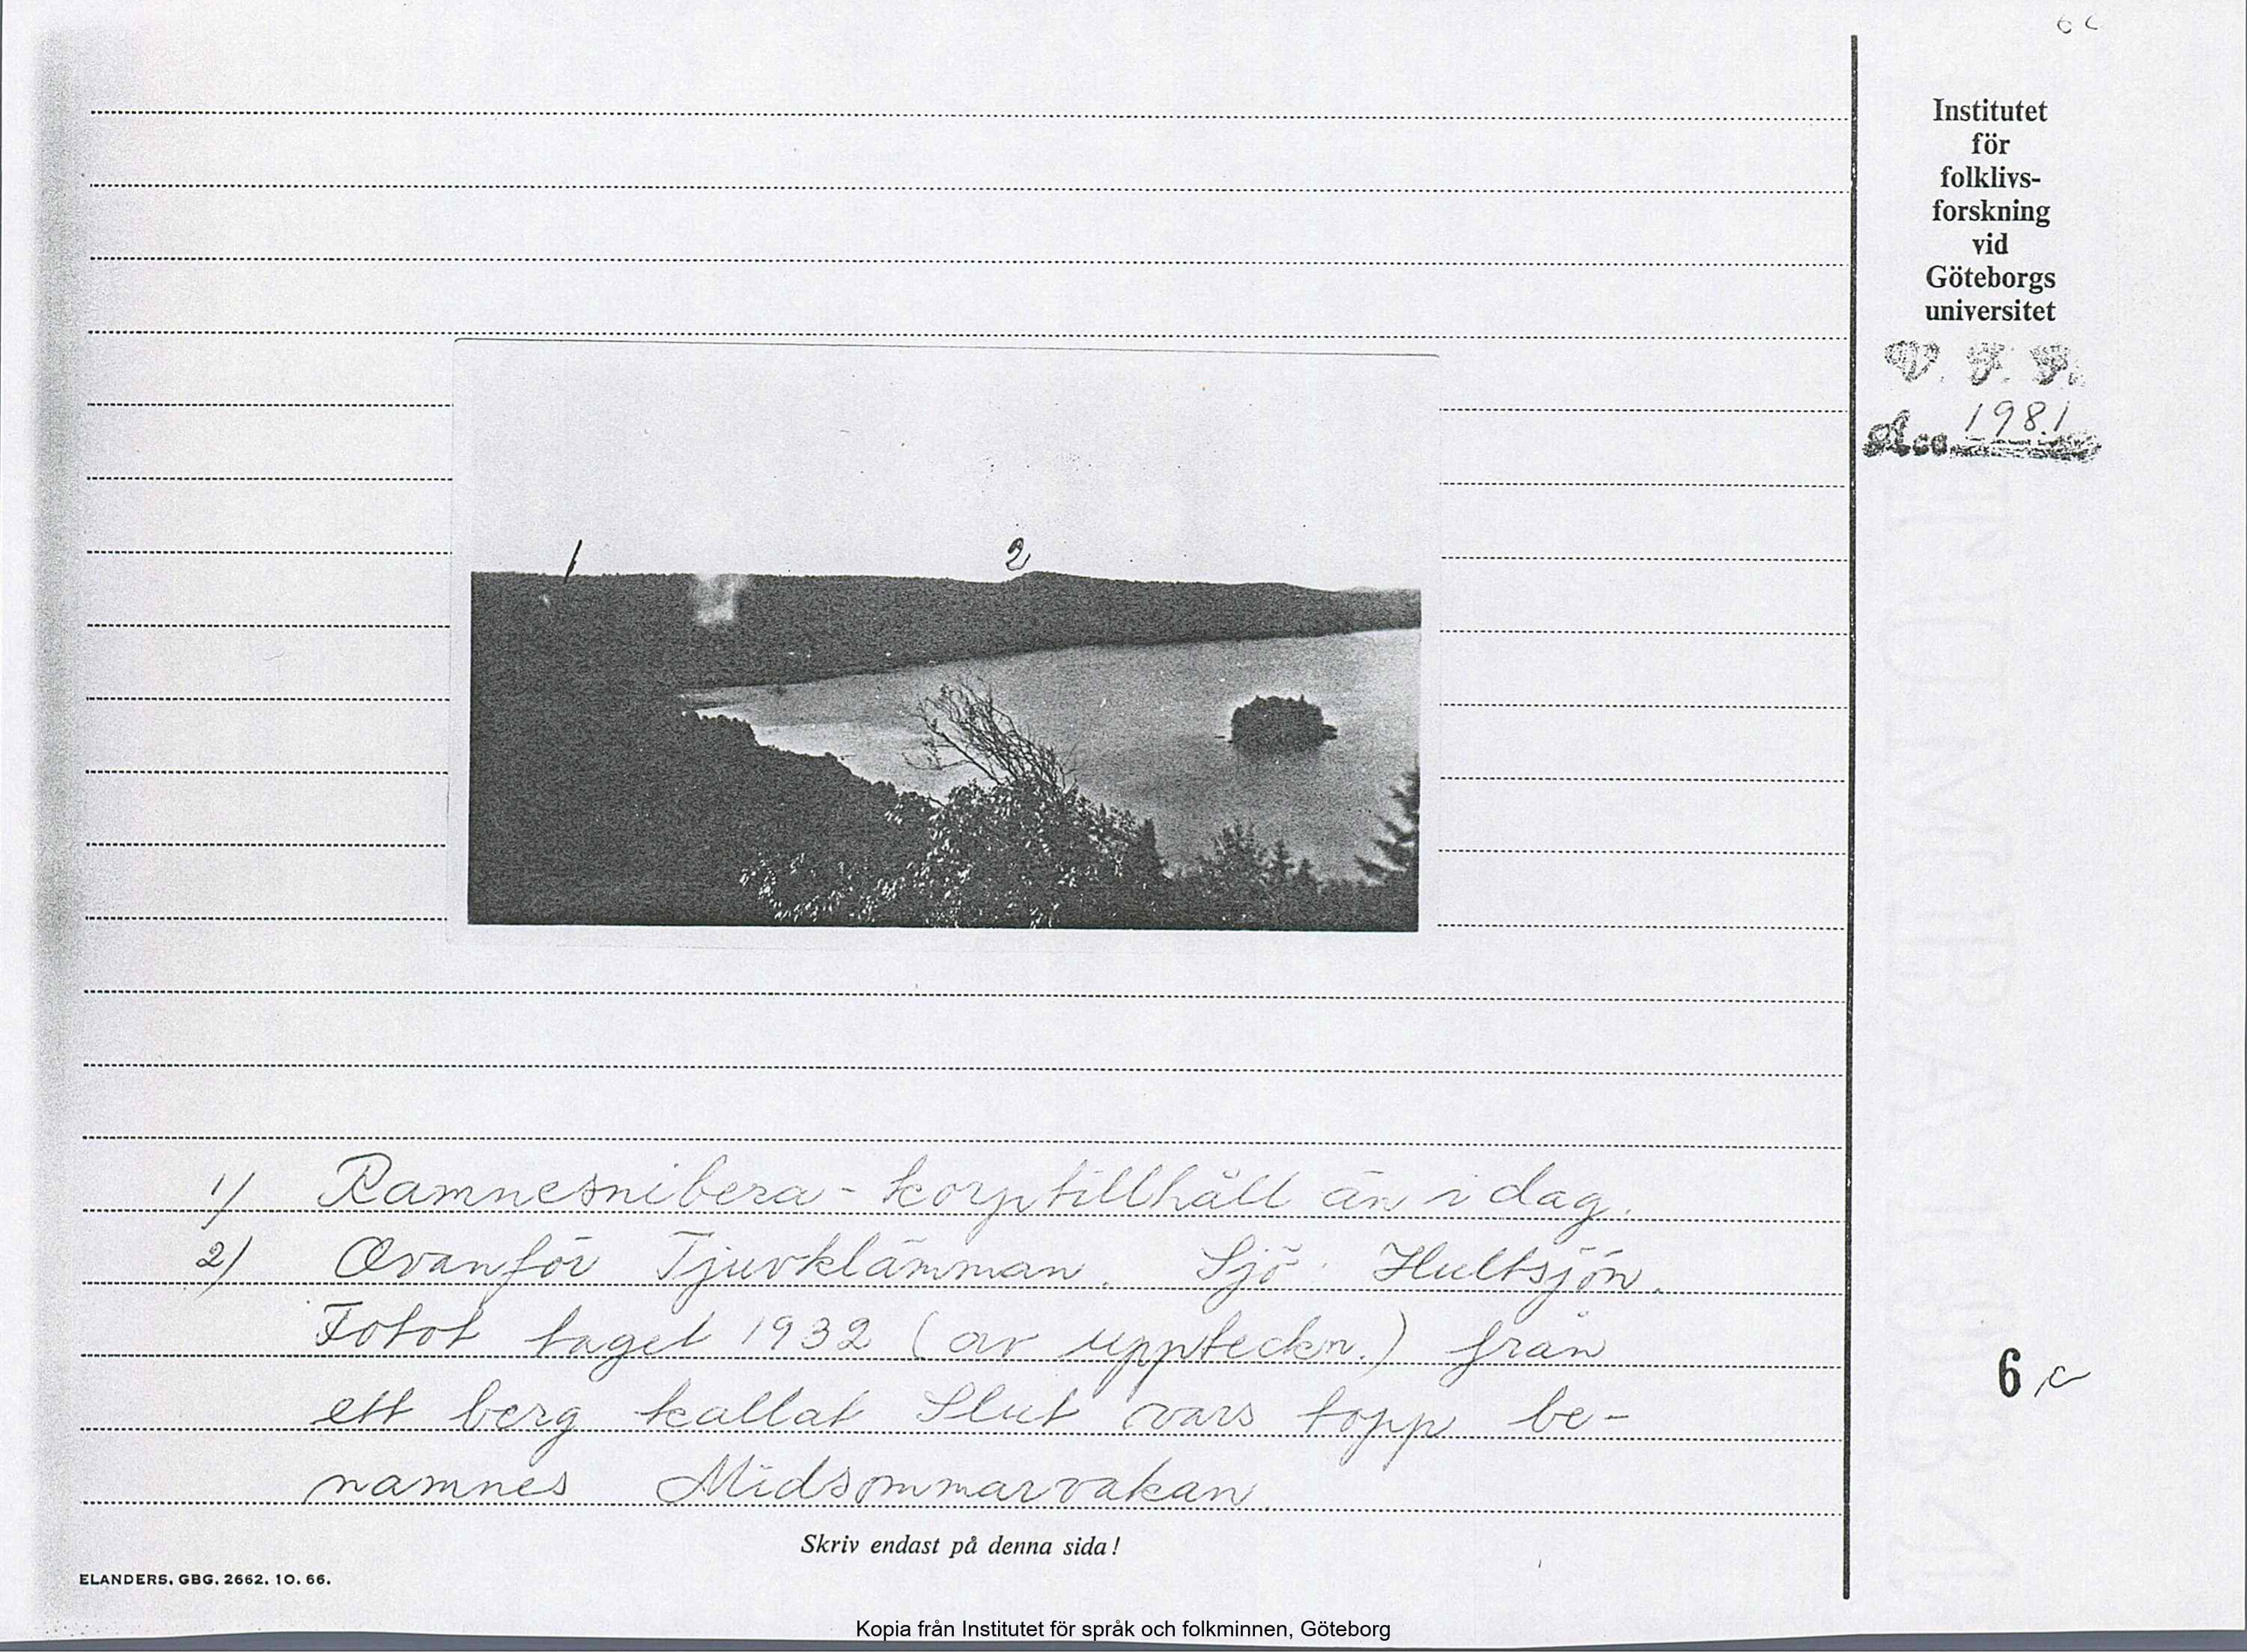 6 c
Institutet
för
folklivs-
forskning
vid
Göteborgs
universitet
V. F. F.
Acc. 1981
1
2
1) Ramnesnibera - korptillhåll än i dag.
2) Ovanför Tjuvklämman. Sjö: Hultsjön.
Fotot taget 1932 (av uppteckn.) från
ett berg kallat Slut vars topp be-
namnes Midsommarvakan.
6 c
Skriv endast på denna sida!
ELANDERS. GBG. 2662. 10. 66.
Kopia från Institutet för språk och folkminnen, Göteborg